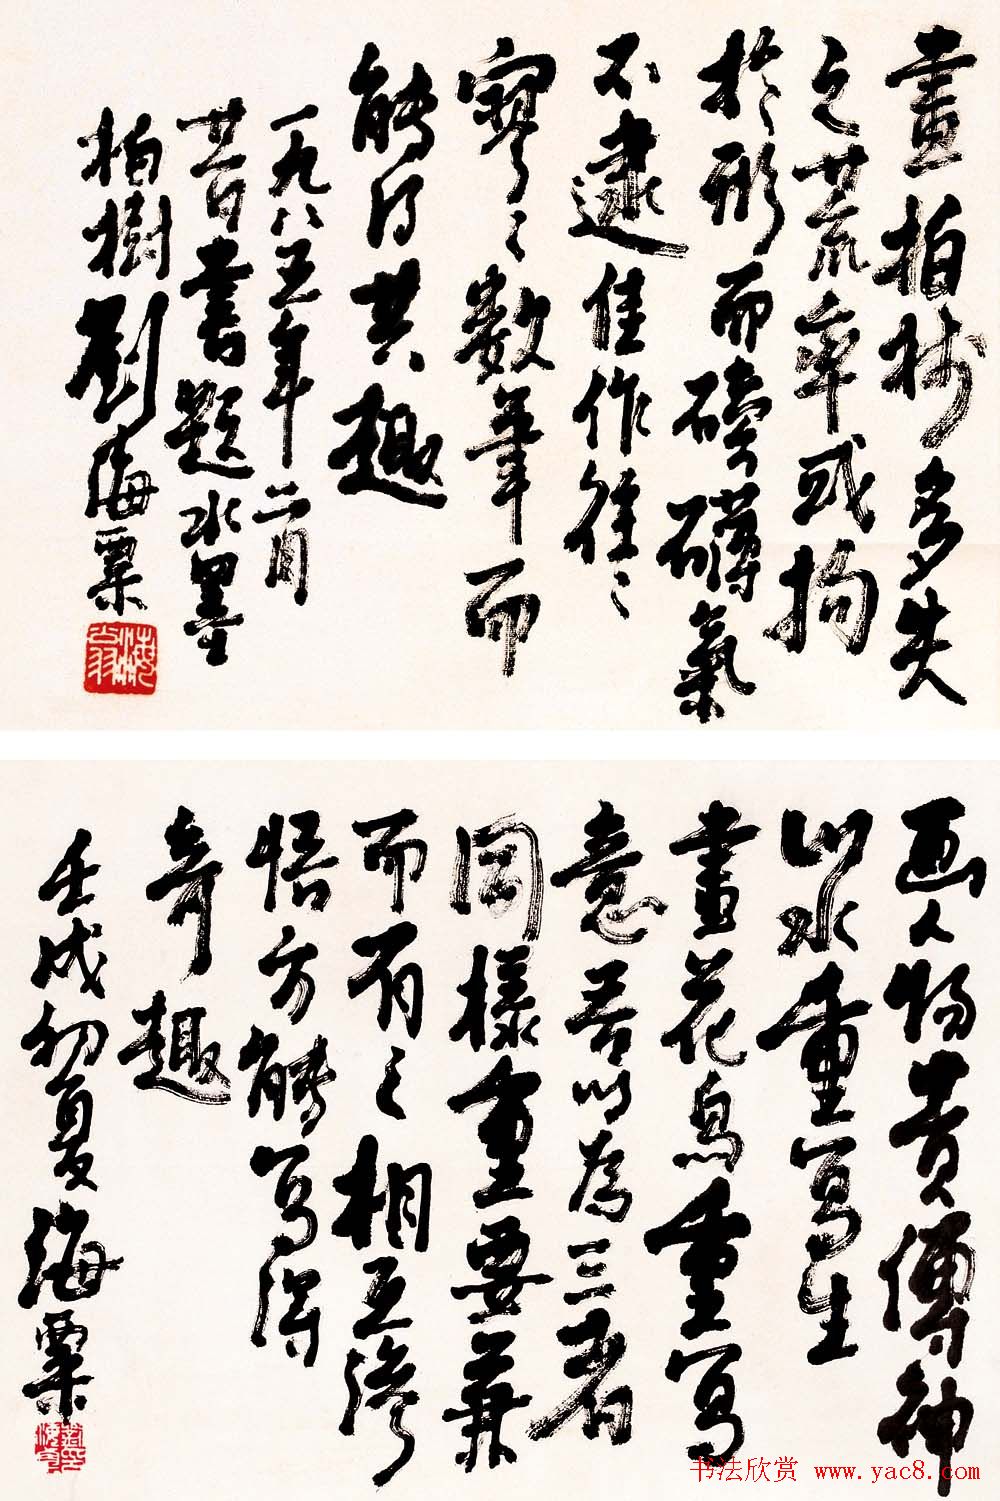 畫柏樹多失
之荒率或拘
於形而礴礴氣
不逮佳作往々
寥々數筆而
能得其趣
一九八五年二月
廿日書題水墨
柏樹劉海粟
海翁
画人物贵傳神
山水重写生
畫花鳥重写
意吾以為三者
同樣重要兼
而有之相互滲
悟方能写得
奇趣
壬戌初夏海粟
书法欣赏 www.yac8.com